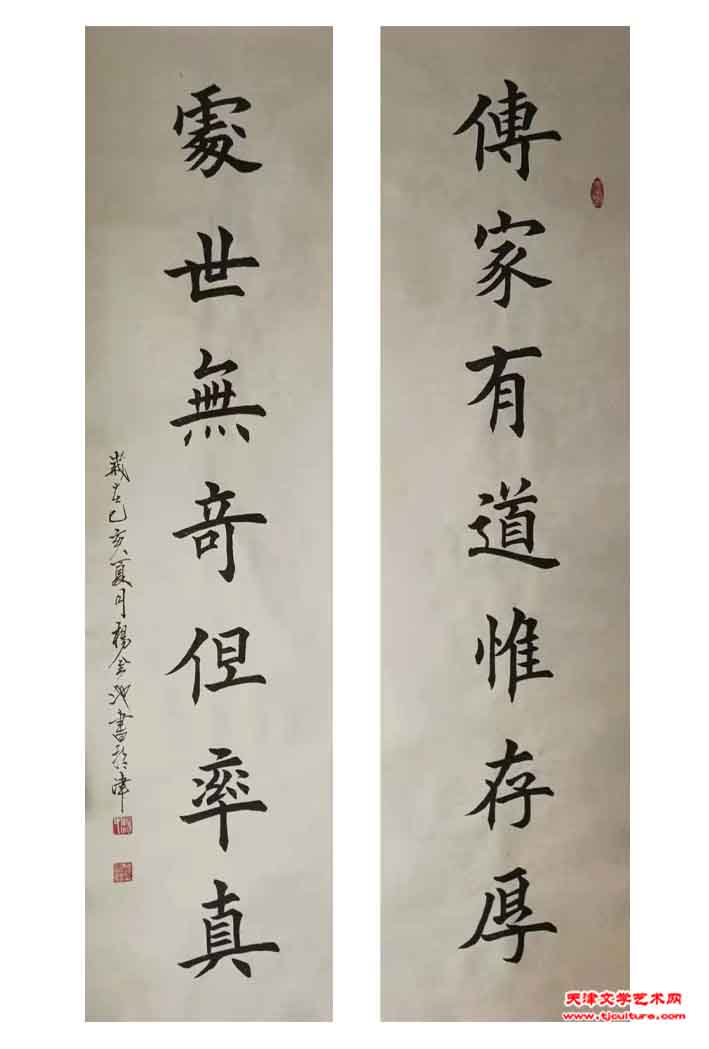 傳家有道惟存厚
處世無奇但率真
歲在己亥夏月楊金池書於津
天津文学艺术网
www.tjculture.com